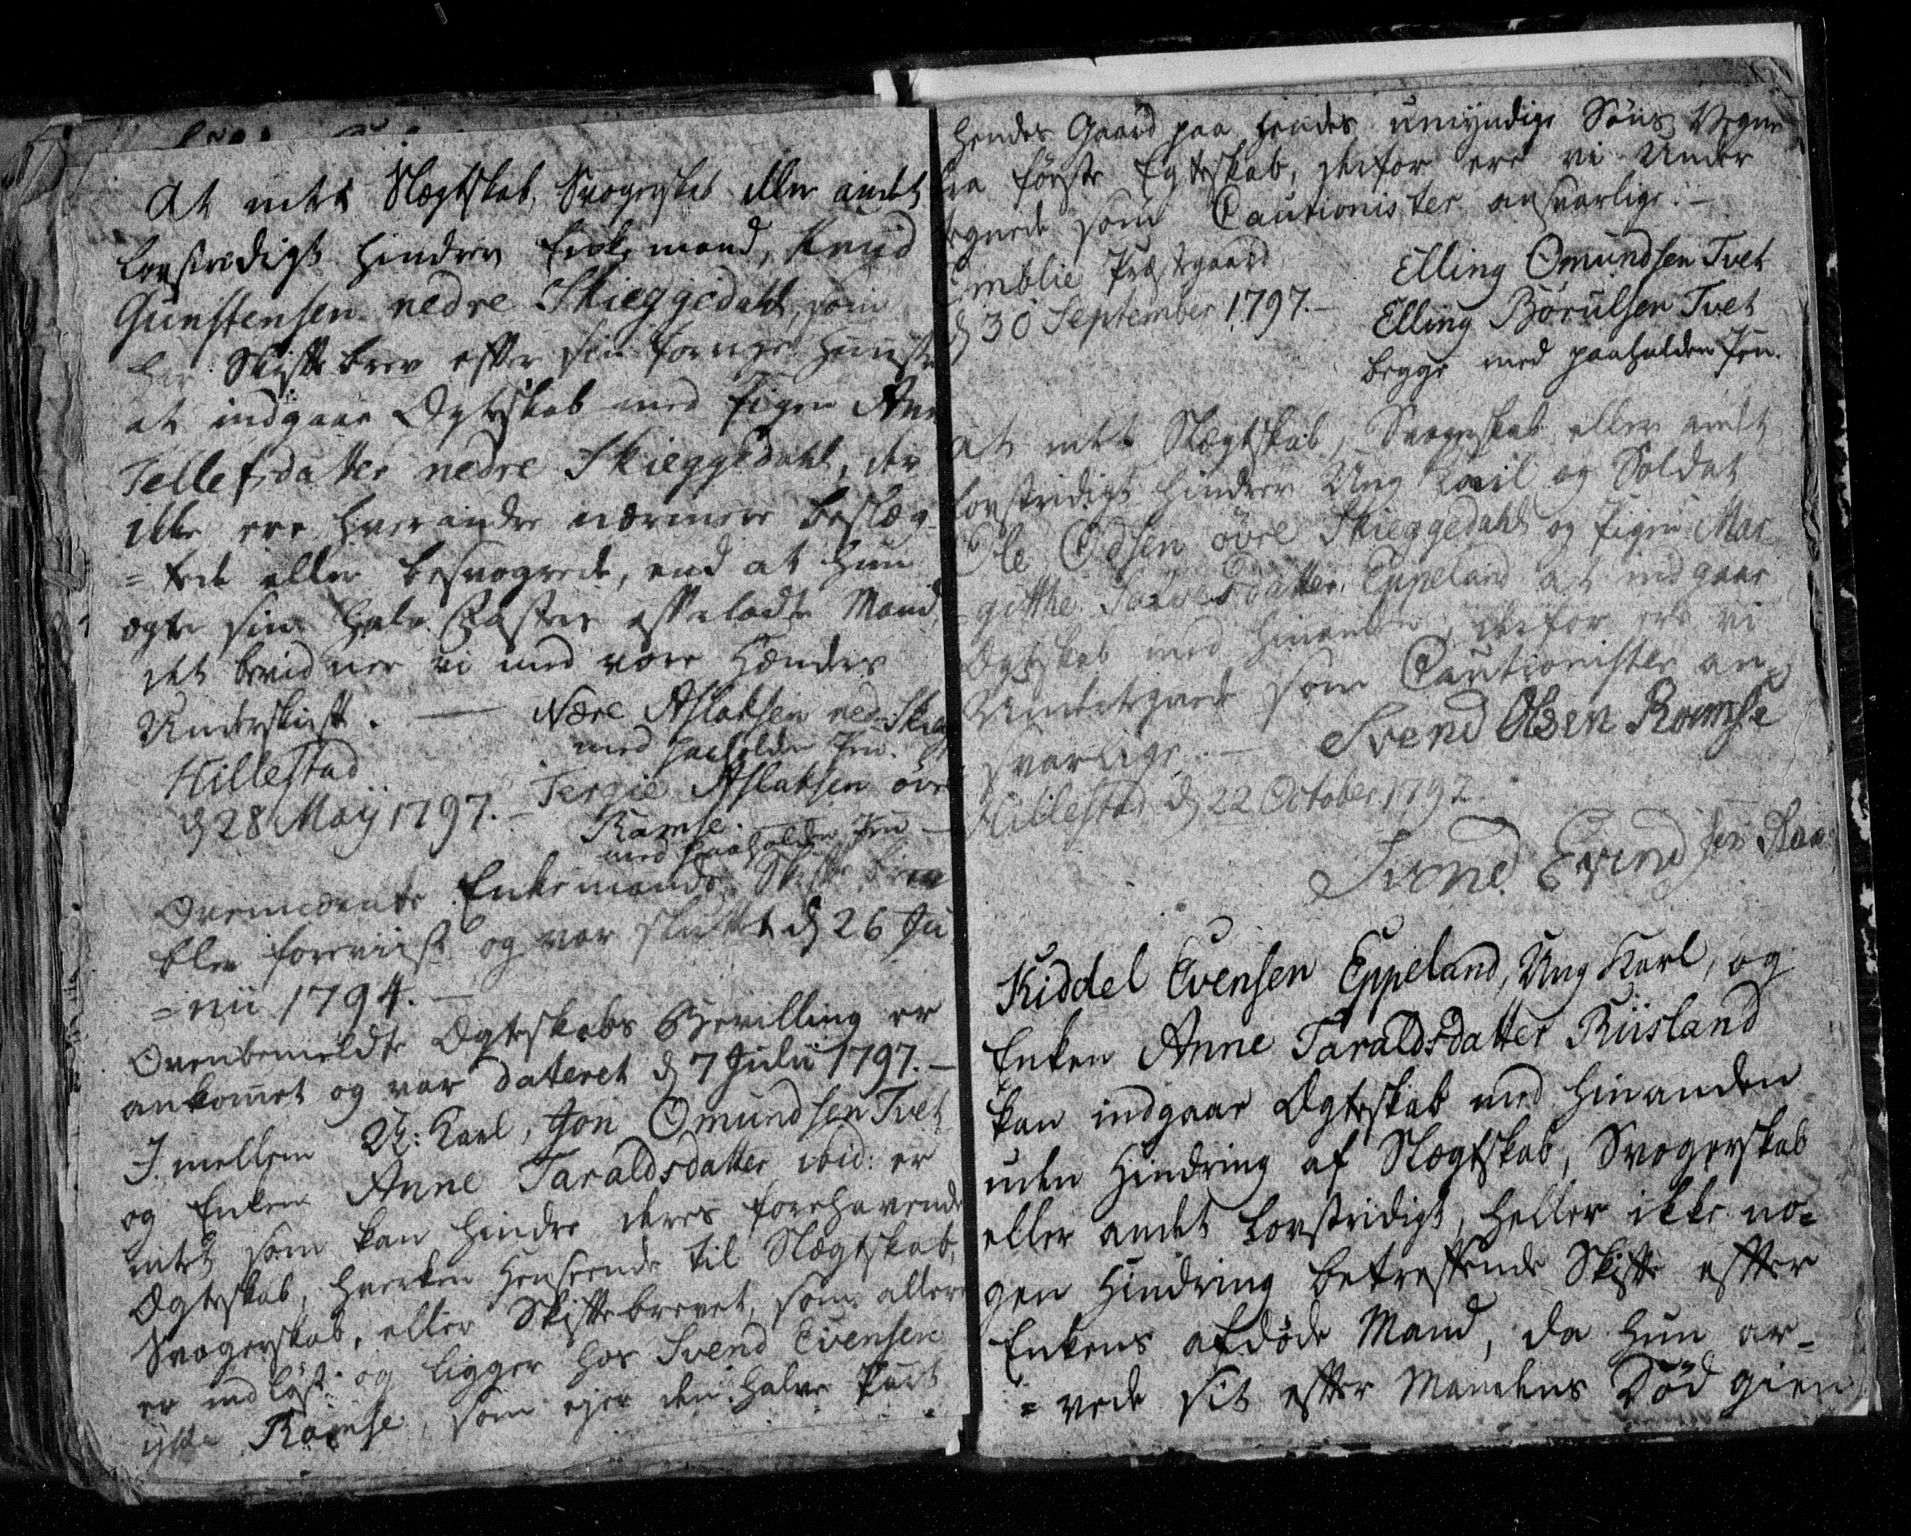 At intet Slægtskab, Svogerskab eller andet
lovstridigt hindrer Enkemand, Knud
Gunstensen nedre Skieggedahl, som
har Skiftebrev efter sin forrige Hustr
at indgaae Ægteskab med Pigen Ann
Tellefsdatter nedre Skieggedahl, der
ikke ere hverandre nærmere beslæg-
= tede eller besvogrede, end at hun
ægter sin halv Søsters efterladte Mand
det bevidner vi med vore Hænders
Underskrift. — Nære Aslaksen ned. Skieg
med paaholden Pen.
Hillestad
d 28 Maij 1797. — Tergie Aslaksen øvre
Ramse
med paaholden Pen —
Ovenmeldte Enkemands Skiftebrev
blev foreviist og var sluttet d 26 Ju
= nii 1794. —
Ovenbemeldte Ægteskabs Bevilling er
ankomet og var dateret d 7 Julii 1797. —
I mellem U: Karl, Jon Omundsen Tvet
og Enken Anne Taraldsdatter ibid: er
intet som kan hindre deres forehavende
Ægteskab, hverken Henseende til Slægtskab,
Svogerskab, eller Skiftebrevet, som allere
er indløst og ligger hos Svend Evensen
Ramse, som ejer den halve Part
hendes Gaard paa hendes umyndige Søns Vegne
fra første Egteskab, derfor ere vi Under
tegnede som Cautionister ansvarlige. —
Omblie Præstgaard
d 30 September 1797. —
Elling Omundsen Tvet
Elling Børulsen Tvet
begge med paaholden Pen.
At intet Slægtskab, Svogerskab eller andet
lovstridigt hindrer Ung Karl og Soldat
Ole Odsen øvre Skieggedahl og Pigen Mar
= githe Salvesdatter Eppeland at indgaae
Ægteskab med hinanden, derfor ere vi
Undertegnede som Cautionister an
svarlige. — Svend Olsen Ramse
Hillestad d 22 October 1797.
Svend Evend sen
Kiddel Evensen Eppeland, Ung Karl, og
Enken Anne Taraldsdatter Riisland
kan indgaae Ægteskab med hinanden
uden Hindring af Slægtskab, Svogerskab
eller andet lovstridigt, heller ikke no=
gen Hindring betreffende Skifte efter
Enkens afdøde Mand, da hun ar-
= vede sit efter Mandens Død gien